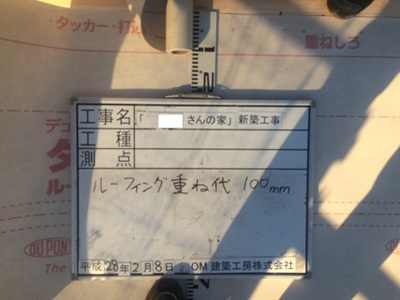 タッカー・打
重ねしろ
工事名 「 さんの家」新築工事
工種
測点
ルーフィング重ね代 100mm
平成28年2月8日 OM建築工房株式会社
デュ
ルー
DUPON
The